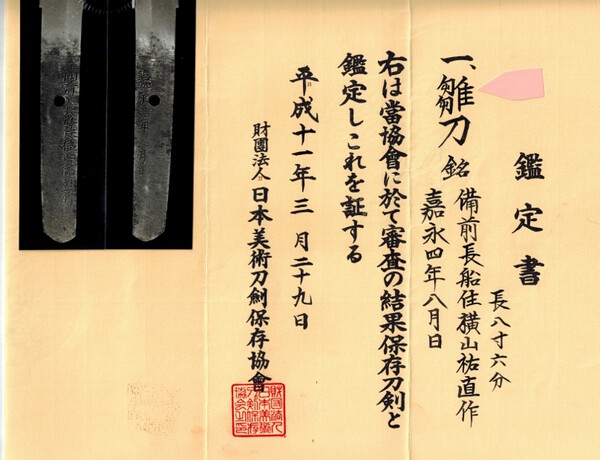 鑑定書
長八寸六分
一、雛刀 銘 備前長船住横山祐直作
嘉永四年八月日
右は當協會に於て審査の結果保存刀剣と
鑑定しこれを証する
平成十一年三月二十九日
財團法人日本美術刀劍保存協會